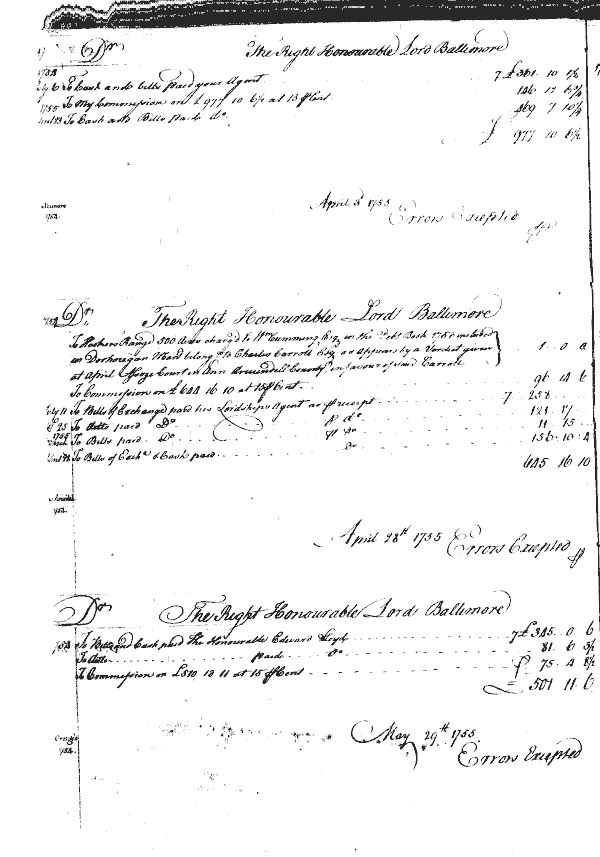 Dr The Right Honourable Lord Baltimore
To Cash and bills paid your Agent 7 £361 10 1½
1755 To My Commission on £977 10 6½ at 15 ℔ Cent 146 12 6¾
To Cash and Bills paid Do. 469 7 10¼
977 10 6½
April 3d 1755
Errors Excepted
Dr The Right Honourable Lord Baltimore
To Range 500 Acres charged to Wm Cumming Esq. in the Debt Book 1754 included
in Dorhoregan Manr belong to Charles Carroll Esq. as Appears by a Verdict given
at April Court in Ann Arundell County in favour of said Carroll 1 0 0
To Commission on £644 16 10 at 15 ℔ Cent 96 14 6
July 11 To Bills of Exchange paid his Lordship's Agent as ℔ receipt 7 258
25 To ditto paid Do ℔ do 121 17
To Bills paid Do ℔ do 11 15
To Bills of Excha & Cash paid Do 156 10 4
645 16 10
April 28th 1755 Errors Excepted
Dr The Right Honourable Lord Baltimore
To Bills and Cash paid The Honourable Edward Lloyd 7 £345 0 6
To ditto paid Do 81 6 3½
To Commission on £510 13 11 at 15 ℔ Cent 75 4 8½
501 11 6
May 29th 1755
Errors Excepted